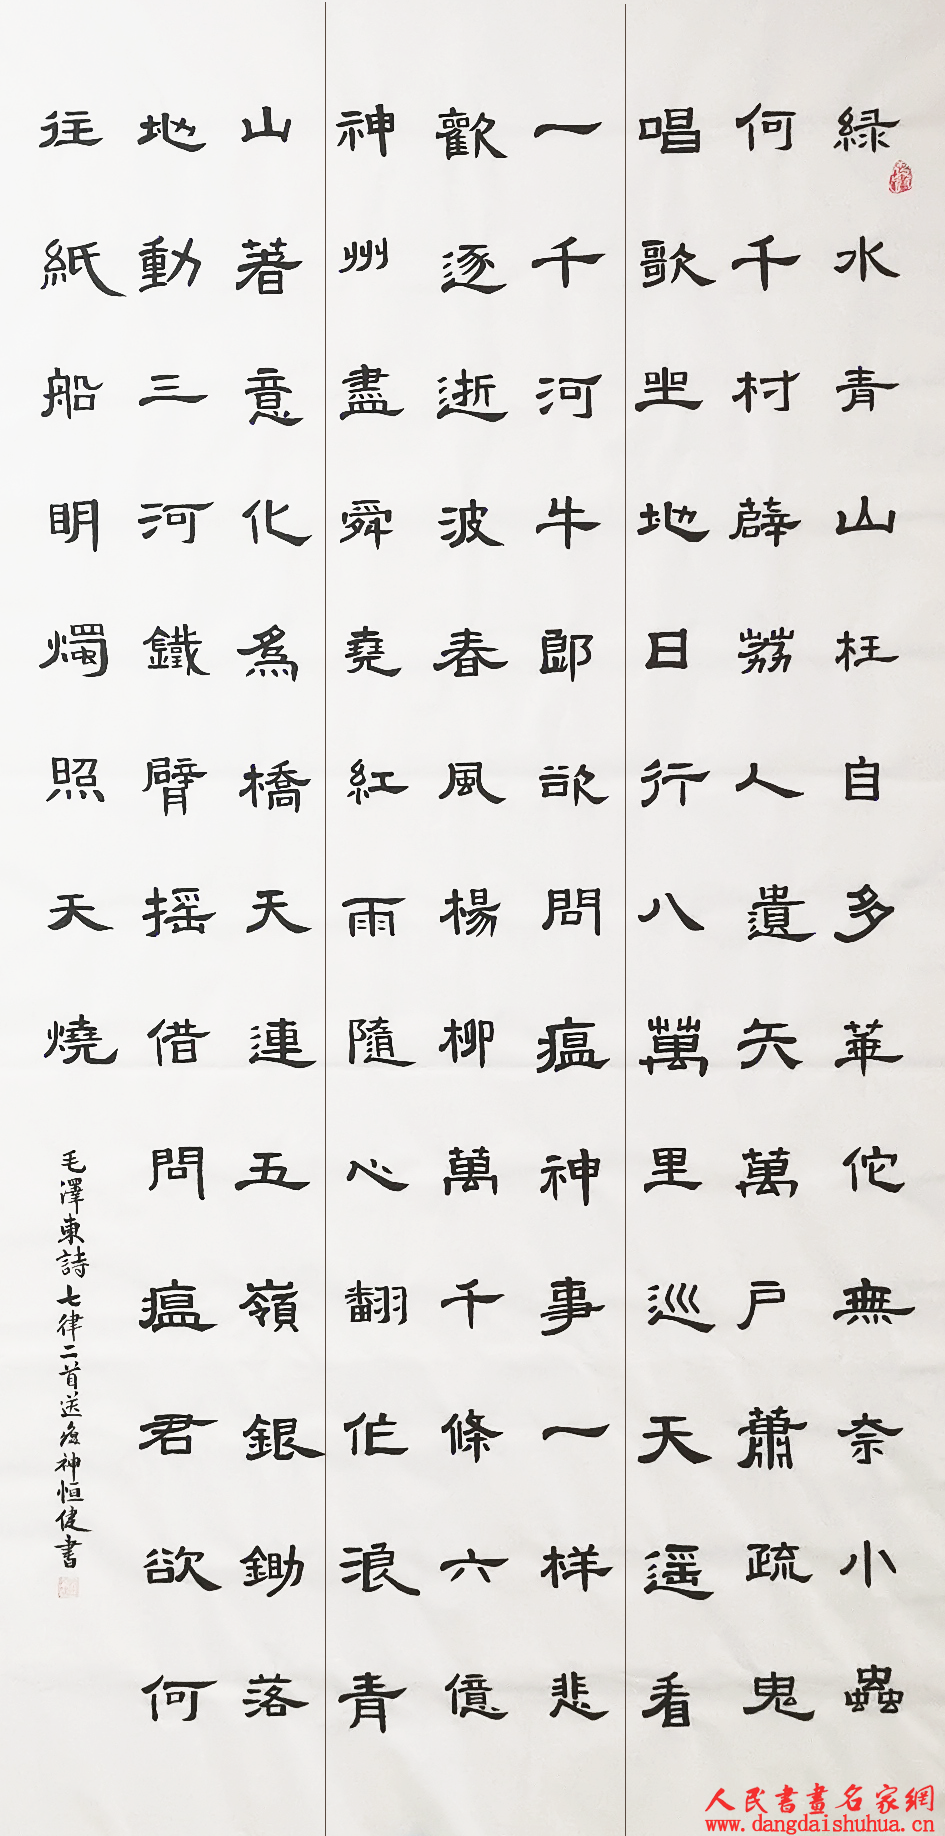 緑水青山枉自多華佗無奈小蟲
何千村薜荔人遺矢萬戶蕭疏鬼
唱歌坐地日行八萬里巡天遥看
一千河牛郎欲問瘟神事一样悲
歡逐逝波春風楊柳萬千條六億
神州盡舜堯紅雨隨心翻作浪青
山著意化為橋天連五嶺銀鋤落
地動三河鐵臂摇借問瘟君欲何
往紙船明燭照天燒
毛澤東詩七律二首送瘟神恒健書
人民書畫名家網
www.dangdaishuhua.cn